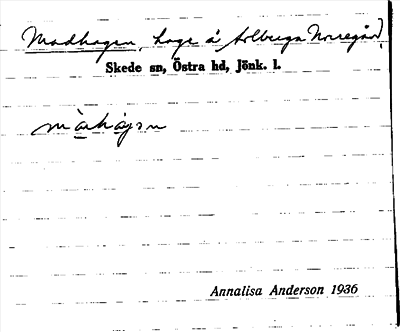 Madhagen, hage å Arlberga Norregård,
Skede sn, Östra hd, Jönk. l.
màhàgən
Annalisa Anderson 1936